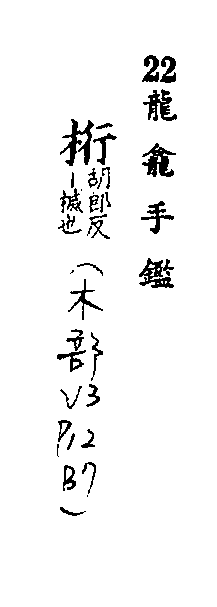 22龍龕手鑑
桁胡郎反
｜械也
(木部V3P12B7)